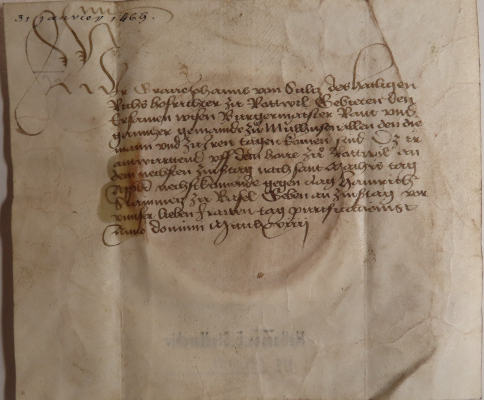 31 janvier 1469.
Wir Graue Johanns von Sulz des hailigen
Richs hofrichter zů Rottwil Gebieten den
Ersamen wysen Burgermaister Raut vnd
gantzer gemainde zů Mulhusen allen den die
mann vnd zů iren tagen komen sind Dz ir
antwurttend vff dem houe zů Rottwil an
dem nechsten zinstag nach sant tag
nechstkomende gegen clag Hainrich
zů Basel Geben an zinstag vor
vnser lieben frawen tag purificacionis
Anno domini